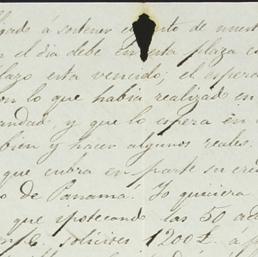 á sostener el de nuest
el dia debe en esta plaza
plazo esta vencido; el espera
con lo que habia realizado en
y que lo espera en
bien y hacer algunos reales.
que cubra en parte su
de Panama. Yo quisiera
que ipotecando las 50
solicites 1200£. á